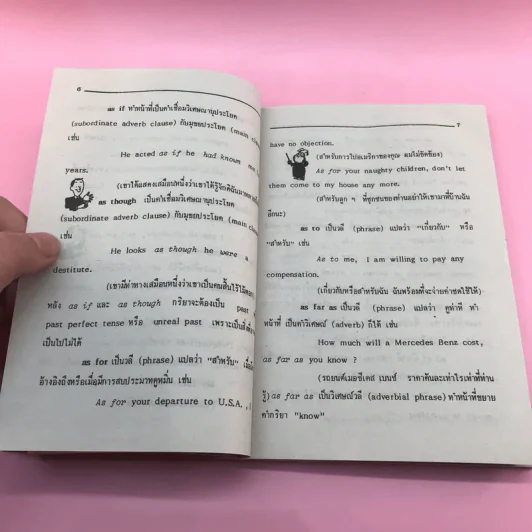 6
as if ทำหน้าที่เป็นคำเชื่อมวิเศษณานุประโยค
(subordinate adverb clause) กับมุขยประโยค (main
เช่น
He acted as if he had known me
years.
(เขาได้แสดงเสมือนหนึ่งว่าเขาได้รู้จักฉัน
as though เป็นคำเชื่อมวิเศษณานุประโยค
(subordinate adverb clause) กับมุขยประโยค (main
เช่น
He looks as though he were a
destitute.
(เขามีท่าทางเสมือนหนึ่งว่าเขาเป็นคนสิ้นไร้ไม้
หลัง as if และ as though กริยาจะต้องเป็น past
past perfect tense หรือ unreal past เพราะเป็นสิ่ง
เป็นไปไม่ได้
as for เป็นวลี (phrase) แปลว่า "สำหรับ"
อ้างอิงถึงหรือเมื่อมีการสบประมาทดูหมิ่น เช่น
As for your departure to U.S.A.,
7
have no objection.
(สำหรับการไปอเมริกาของคุณ ผมไม่ขัดข้อง)
As for your naughty children, don't let
them come to my house any more.
(สำหรับลูก ๆ ที่ซุกซนของท่านอย่าให้เขามาที่บ้านฉัน
อีกนะ)
as to เป็นวลี (phrase) แปลว่า "เกี่ยวกับ" หรือ
"สำหรับ" เช่น
As to me, I am willing to pay any
compensation.
(เกี่ยวกับหรือสำหรับฉัน ฉันพร้อมที่จะจ่ายค่าชดใช้ให้)
as far as เป็นวลี (phrase) แปลว่า เท่าที่ ทำ
หน้าที่ เป็นคำวิเศษณ์ (adverb) ก็ได้ เช่น
How much will a Mercedes Benz cost,
as far as you know ?
(รถยนต์เมอซีเดส เบนซ์ ราคาคันละเท่าไรเท่าที่ท่าน
รู้) as far as เป็นวิเศษณ์วลี (adverbial phrase) ทำหน้าที่ขยาย
คำกริยา "know"